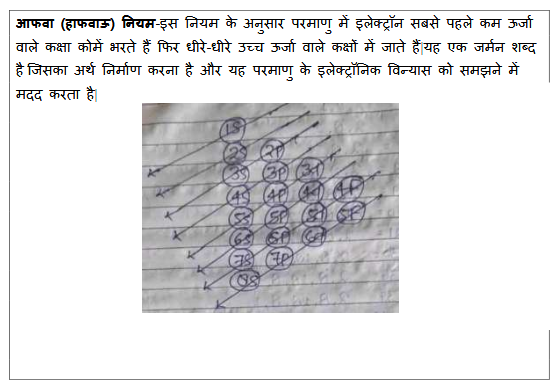 आफवा (हाफवाऊ) नियम-इस नियम के अनुसार परमाणु में इलेक्ट्रॉन सबसे पहले कम ऊर्जा
वाले कक्षा कोमें भरते हैं फिर धीरे-धीरे उच्च ऊर्जा वाले कक्षों में जाते हैं|यह एक जर्मन शब्द
है जिसका अर्थ निर्माण करना है और यह परमाणु के इलेक्ट्रॉनिक विन्यास को समझने में
मदद करता है|
1S
2S 2P
3S 3P 3d
4S 4P 4d 4f
5S 5P 5d 5f
6S 6P 6d
7S 7P
8S